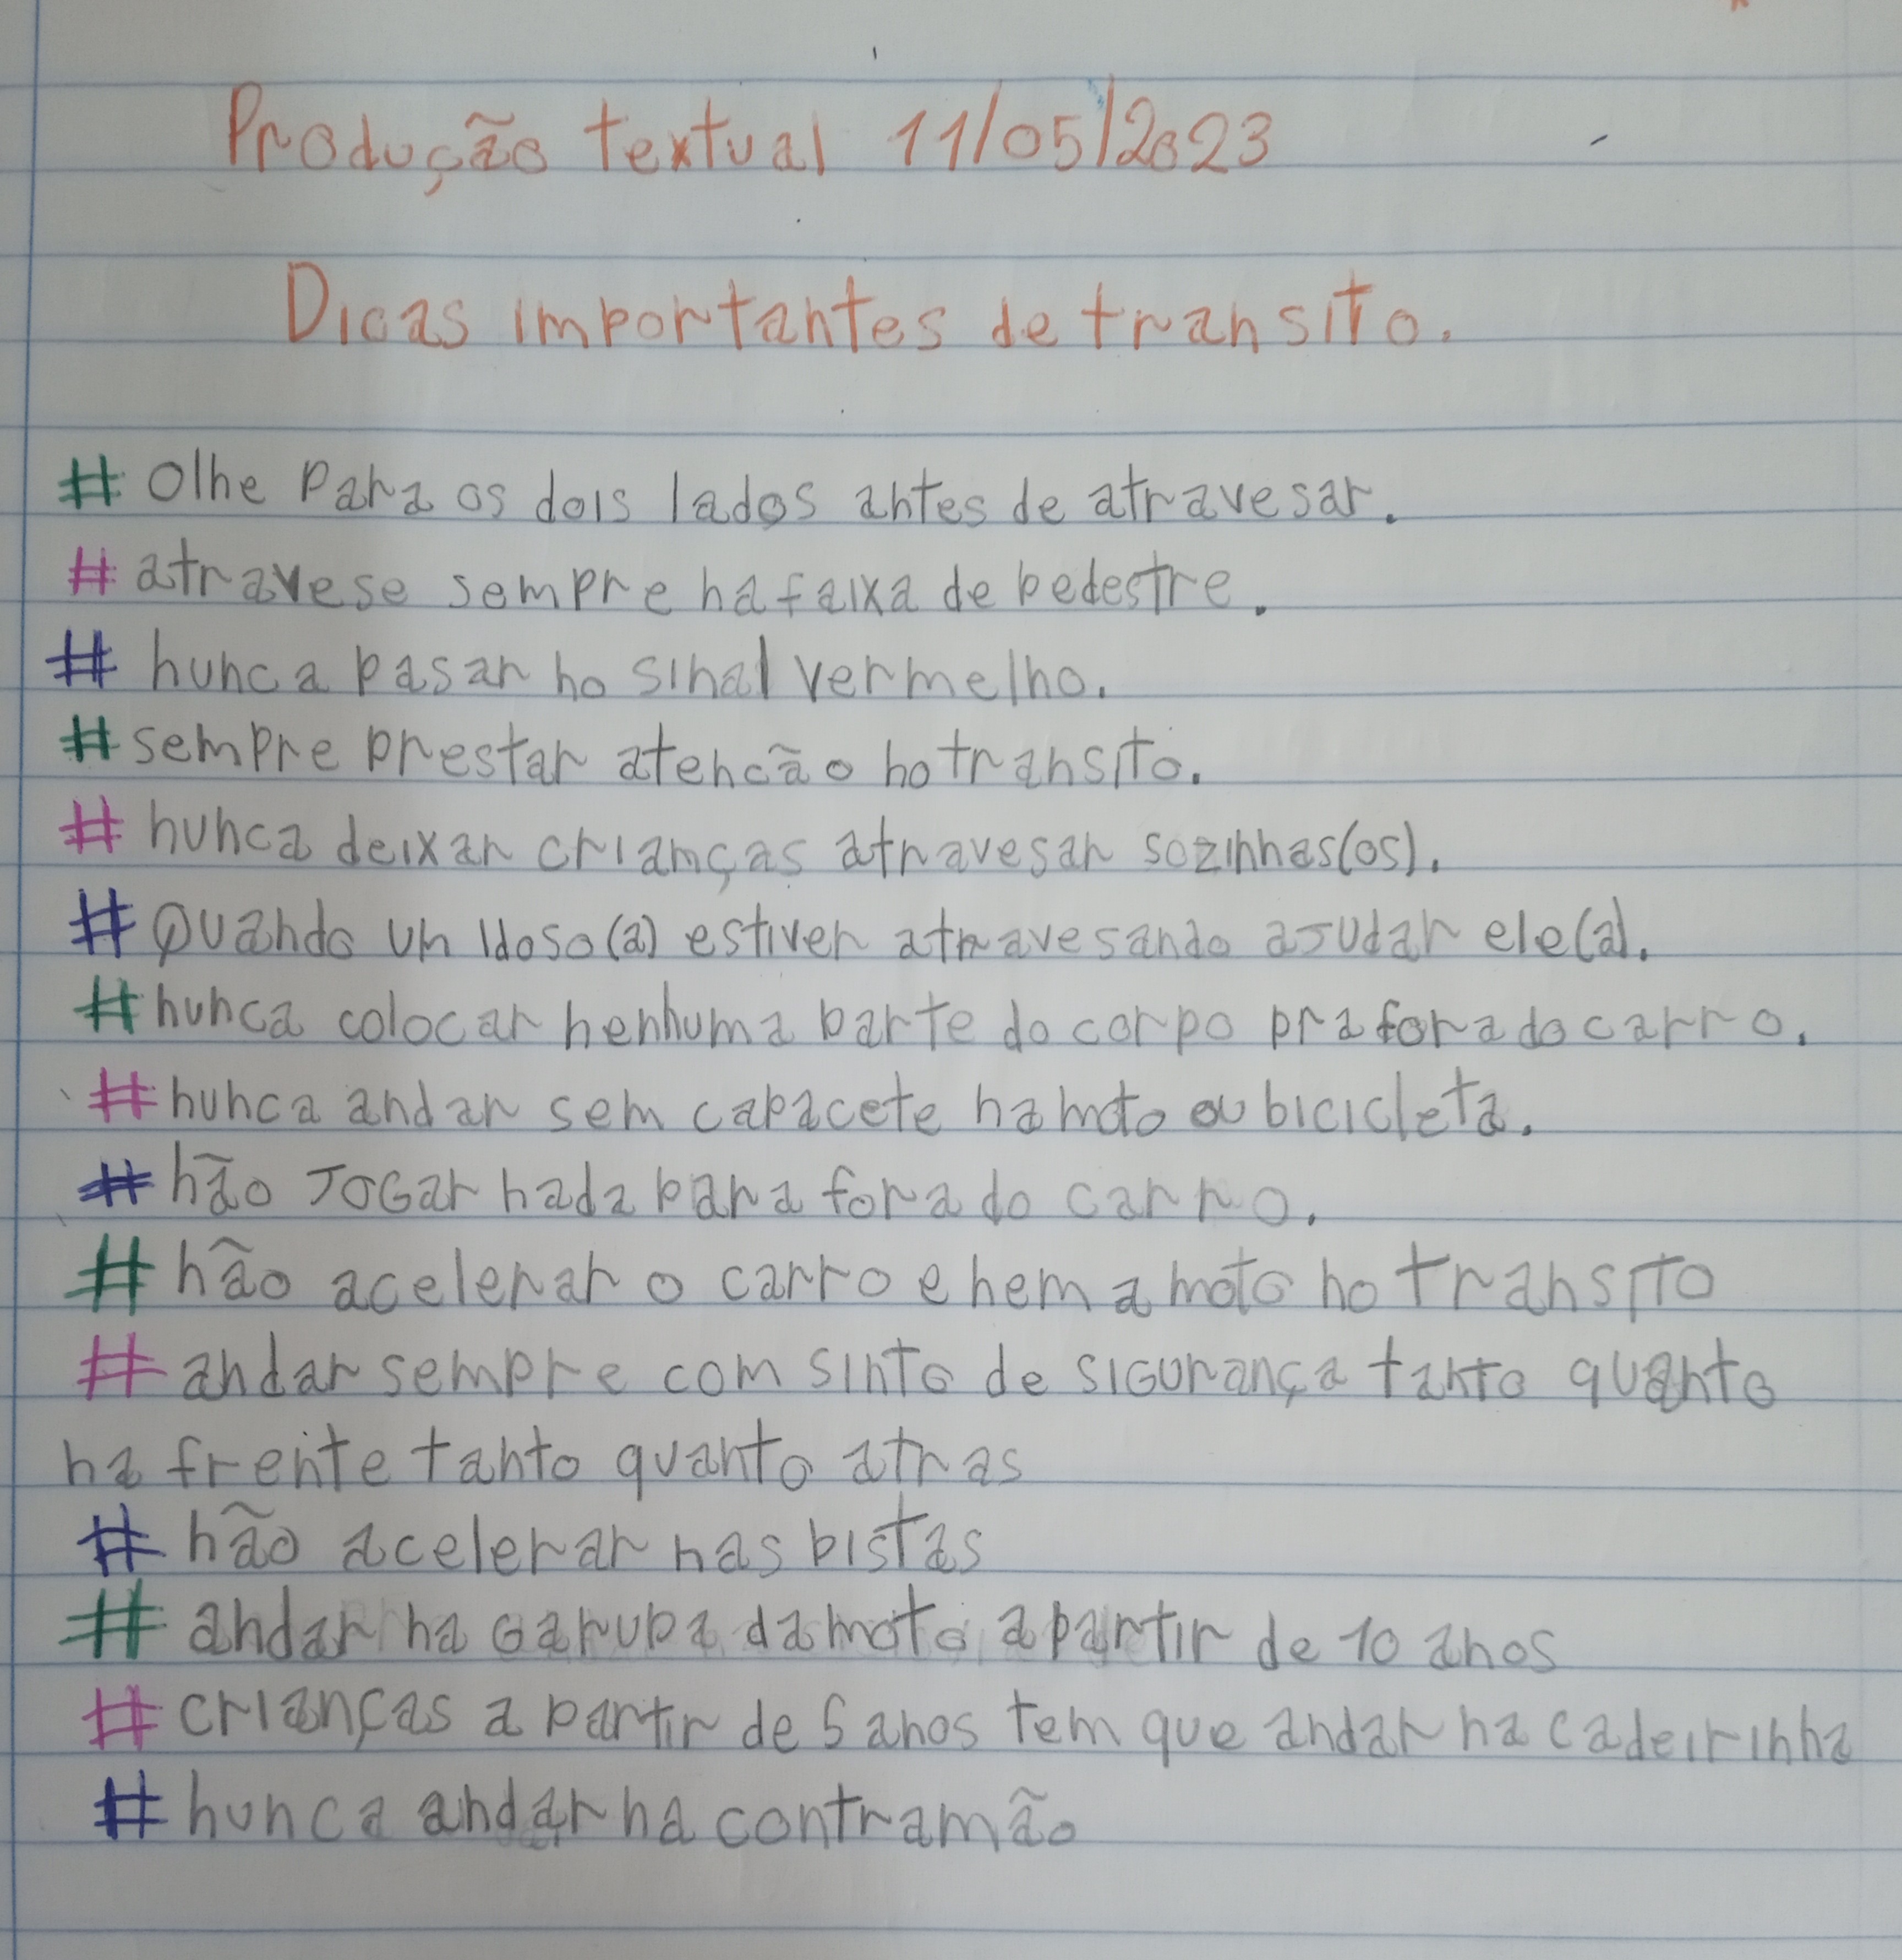 Produção textual 11/05/2023
Dicas importantes de transito.
# Olhe Para os dois lados antes de atravesar.
# atravese sempre na faixa de pedestre.
# nunca pasar no sinal vermelho.
# sempre prestar atencão no transito.
# nunca deixar crianças atravesar sozinhas(os).
# Quando un idoso(a) estiver atravesando ajudar ele(a).
# nunca colocar nenhuma parte do corpo pra fora do carro.
# nunca andar sem capacete na moto ou bicicleta.
# não jogar nada para fora do carro.
# não acelerar o carro e nem a moto no transito
# andar sempre com sinto de sigurança tanto quanto
na frente tanto quanto atras
# não acelerar nas pistas
# andar na garupa da moto a partir de 10 anos
# crianças a partir de 5 anos tem que andar na cadeirinha
# nunca andar na contramão